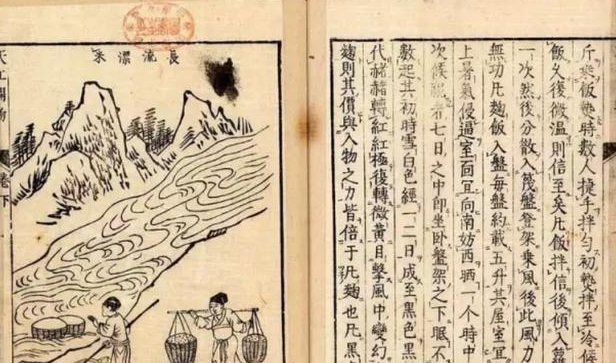 斤乘飯熱時數人捷手拌勻初熱拌至冷候
飯久復微溫則信至矣凡飯拌信後傾入籮
一次然後分散入篾盤登架乘風後此風力
無功凡麴飯入盤每盤約載五升其屋室宜
上暑氣侵逼室面宜向南妨西晒一個時中
次候視者七日之中即坐臥盤架之下眠不
數起其初時雪白色經一二日成至黑色黑
代赭赭轉紅紅極復轉微黄目擊風中變幻
麴則其價與入物之力皆倍于凡麴也凡黑
長流漂汞
天工開物 卷下